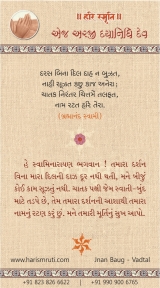 ॥ હરિ સ્મૃતિ ॥
એજ અરજી દયાનિધિ દેવ
દરસ બિના દિલ દાહ ન બુઝત,
નાહીં સૂઝત કછુ કાજ અનેરા;
ચાતક નિરંતર ચિત્તમેં તલફત,
નામ રટત હરિ તેરા.
(પ્રેમાનંદ સ્વામી)
હે સ્વામિનારાયણ ભગવાન ! તમારા દર્શન
વિના મારા દિલનો દાઝ દૂર નથી થતી. મને બીજું
કોઈ કામ સૂઝતું નથી. ચાતક પક્ષી જેમ સ્વાતી-બુંદ
માટે તડપે છે, તેમ તમારા દર્શનની આશાથી તમારા
નામનું રટણ કરું છું. મને તમારી મૂર્તિનું સુખ આપો.
www.harismruti.com
Jnan Baug - Vadtal
+91 823 826 6622
+91 990 900 6765